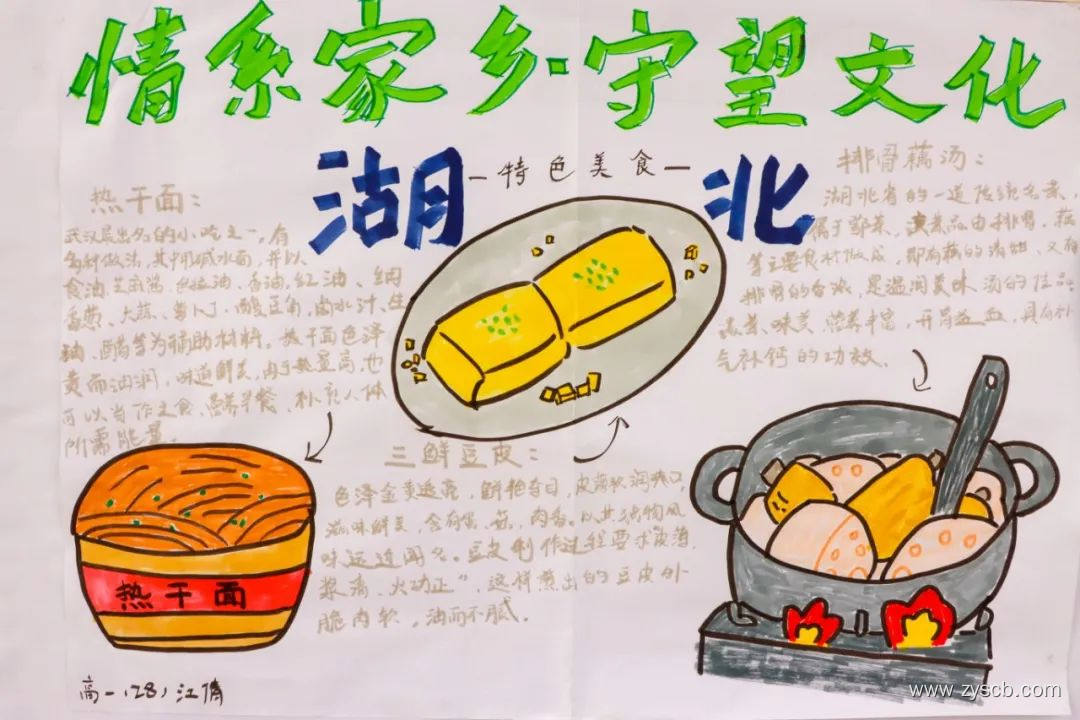 情系家乡·守望文化
湖北
—特色美食—
热干面：
武汉最出名的小吃之一，有
多种做法，其中用碱水面，并以
食油、芝麻酱、色拉油、香油、红油、细
香葱、大蒜、萝卜丁、酸豆角、卤水汁、生
抽、醋等为辅助材料。热干面色泽
黄而油润，味道鲜美，由于热量高，也
可以当作主食，营养早餐，补充人体
所需能量。
热干面
高一（28）江倩
三鲜豆皮：
色泽金黄透亮，鲜艳夺目，皮薄软润爽口，
滋味鲜美，含有蛋、菇、肉香。以其独特风
味远近闻名。豆皮制作过程要求皮薄，
浆清，火功正”，这样煎出的豆皮外
脆内软，油而不腻。
排骨藕汤：
湖北省的一道传统名菜，
属于鄂菜，该菜品由排骨、藕
等主要食材做成，即有藕的清甜，又有
排骨的香浓，是温润美味汤的佳品
味美、营养丰富，开胃益血，具有补
气补钙的功效。
www.zyscb.com